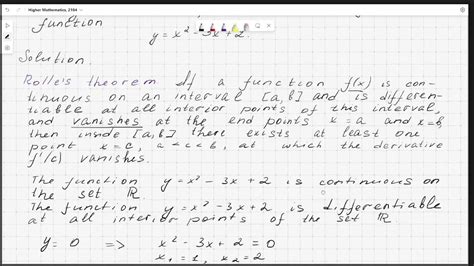 Higher Mathematics, 2184
function
y = x² - 3x + 2.
Solution.
Rolle's theorem. If a function f(x) is con-
tinuous on an interval [a,b] and is differen-
tiable at all interior points of this interval,
and vanishes at the end points x = a and x = b,
then inside [a,b] there exists at least one
point x = c, a < c < b, at which the derivative
f'(c) vanishes.
The function y = x² - 3x + 2 is continuous on
the set ℝ.
The function y = x² - 3x + 2 is differentiable
at all interior points of the set ℝ.
y = 0 => x² - 3x + 2 = 0
x₁ = 1, x₂ = 2